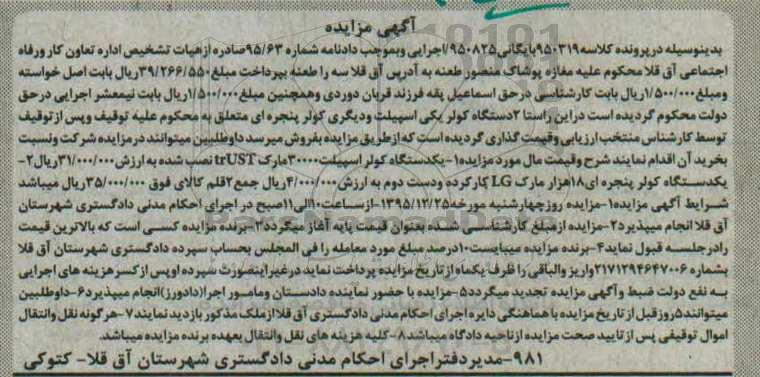 آگهی مزایده
بدینوسیله در پرونده کلاسه ۹۵۰۳۱۹بایگانی/۹۵۰۸۲۵اجرایی وبموجب دادنامه شماره ۹۵/۶۳صادره ازهیات تشخیص اداره تعاون کار ورفاه
اجتماعی آق قلا محکوم علیه مغازه پوشاک منصور طعنه به آدرس آق قلا سه را طعنه بپرداخت مبلغ۳۹/۲۶۶/۵۵۰ریال بابت اصل خواسته
ومبلغ۱/۵۰۰/۰۰۰ریال بابت کارشناسی درحق اسماعیل یقه فرزند قربان دوردی وهمچنین مبلغ۱/۵۰۰/۰۰۰ریال بابت نیمعشر اجرایی درحق
دولت محکوم گردیده است دراین راستا ۲دستگاه کولر یکی اسپیلت ودیگری کولر پنجره ای متعلق به محکوم علیه توقیف وپس ازتوقیف
توسط کارشناس منتخب ارزیابی وقیمت گذاری گردیده است که ازطریق مزایده بفروش میرسد داوطلبین میتوانند درمزایده شرکت ونسبت
بخرید آن اقدام نمایند شرح وقیمت مال مورد مزایده۱-یکدستگاه کولر اسپیلت۳۰۰۰۰مارک trUST نصب شده به ارزش۳۱/۰۰۰/۰۰۰ریال۲-
یکدستگاه کولر پنجره ای۱۸هزار مارک LG کارکرده ودست دوم به ارزش۴/۰۰۰/۰۰۰ریال جمع۲قلم کالای فوق ۳۵/۰۰۰/۰۰۰ریال میباشد
شرایط آگهی مزایده۱-مزایده روزچهارشنبه مورخه۱۳۹۵/۱۲/۲۵-ازساعت۱۰الی۱۱صبح در اجرای احکام مدنی دادگستری شهرستان
آق قلا انجام میپذیرد۲-مزایده ازمبلغ کارشناسی شده بعنوان قیمت پایه آغاز میگردد۳-برنده مزایده کسی است که بالاترین قیمت
رادرجلسه قبول نماید۴-برنده مزایده میبایست۱۰درصد مبلغ مورد معامله را فی المجلس بحساب سپرده دادگستری شهرستان آق قلا
بشماره ۲۱۷۱۲۹۴۶۴۷۰۰۶واریز والباقی را ظرف یکماه ازتاریخ مزایده پرداخت نماید درغیراینصورت سپرده اوپس ازکسرهزینه های اجرایی
به نفع دولت ضبط وآگهی مزایده تجدید میگردد۵-مزایده با حضور نماینده دادستان ومامور اجرا(دادورز)انجام میپذیرد۶-داوطلبین
میتوانند۵روزقبل از تاریخ مزایده با هماهنگی دایره اجرای احکام مدنی دادگستری آق قلا ازملک مذکور بازدید نمایند۷-هرگونه نقل وانتقال
اموال توقیفی پس ازتایید صحت مزایده ازناحیه دادگاه میباشد۸-کلیه هزینه های نقل وانتقال بعهده برنده مزایده میباشد.
۹۸۱-مدیردفتراجرای احکام مدنی دادگستری شهرستان آق قلا- کتوکی